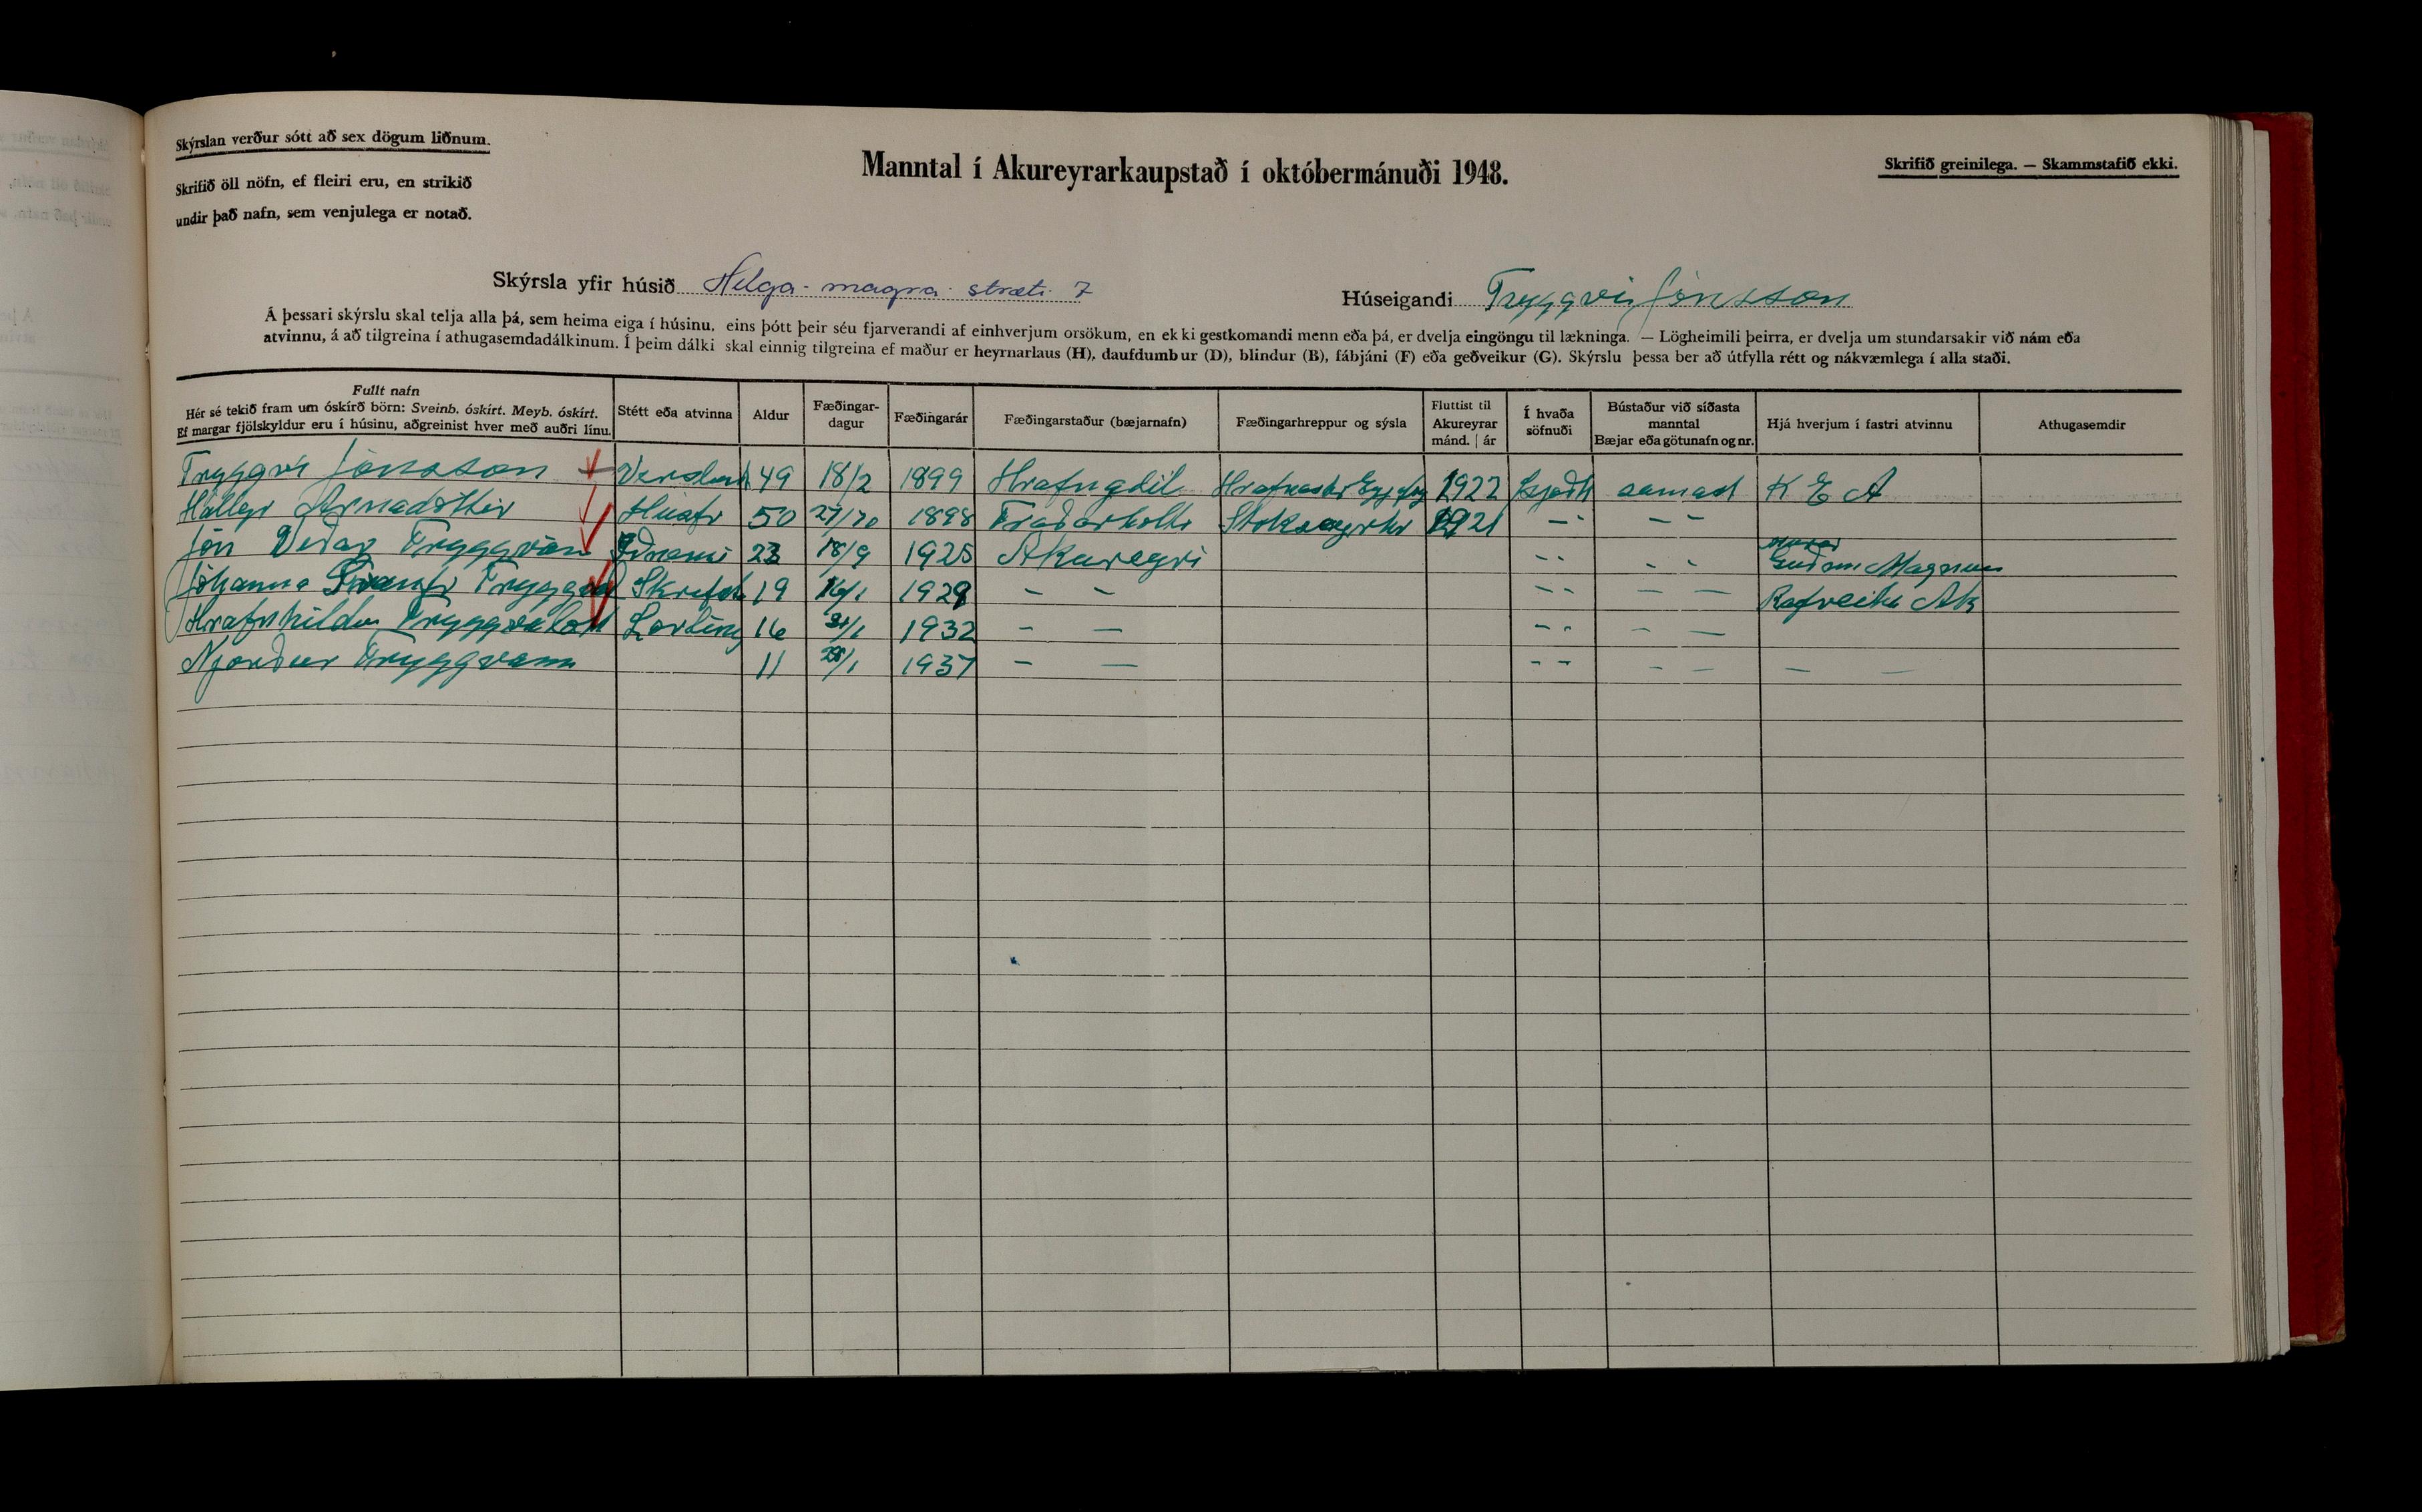 Skýrslan verður sótt að sex dögum liðnum.
Skrifið öll nöfn, ef fleiri eru, en strikið
undir það nafn, sem venjulega er notað.
Manntal í Akureyrarkaupstað í októbermánuði 1948.
Skrifið greinilega. — Skammstafið ekki.
Skýrsla yfir húsið Helga-magra-stræti 7
Húseigandi Tryggvi Jónsson
Á þessari skýrslu skal telja alla þá, sem heima eiga í húsinu, eins þótt þeir séu fjarverandi af einhverjum orsökum, en ekki gestkomandi menn eða þá, er dvelja eingöngu til lækninga. — Lögheimili þeirra, er dvelja um stundarsakir við nám eða
atvinnu, á að tilgreina í athugasemdadálkinum. Í þeim dálki skal einnig tilgreina ef maður er heyrnarlaus (H), daufdumbur (D), blindur (B), fábjáni (F) eða geðveikur (G). Skýrslu þessa ber að útfylla rétt og nákvæmlega í alla staði.
Fullt nafn
Hér sé tekið fram um óskírð börn: Sveinb. óskírt. Meyb. óskírt.
Ef margar fjölskyldur eru í húsinu, aðgreinist hver með auðri línu.
Stétt eða atvinna
Aldur
Fæðingar-
dagur
Fæðingarár
Fæðingarstaður (bæjarnafn)
Fæðingarhreppur og sýsla
Fluttist til
Akureyrar
mánd. | ár
Í hvaða
söfnuði
Bústaður við síðasta
manntal
Bæjar eða götunafn og nr.
Hjá hverjum í fastri atvinnu
Athugasemdir
Tryggvi Jónsson 49 18/2 1899 Hrafnagil 1922 samast K E A
Hallgr Arnadóttir Húsfr 50 1898 Traðarholti Stokseyrhr 1921 — — — —
Jón Viðar Tryggvason 23 18/9 1925 Akureyri — — — — Guðm Magnuss
Jóhanna Tryggvad Skrifst 19 16/1 1929 — — — — — — Rafveita Ak
Hrafnhildur Tryggvadótt 16 31/1 1932 — — — — — —
Njörður Tryggvason 11 28/1 1937 — — — — — — — —